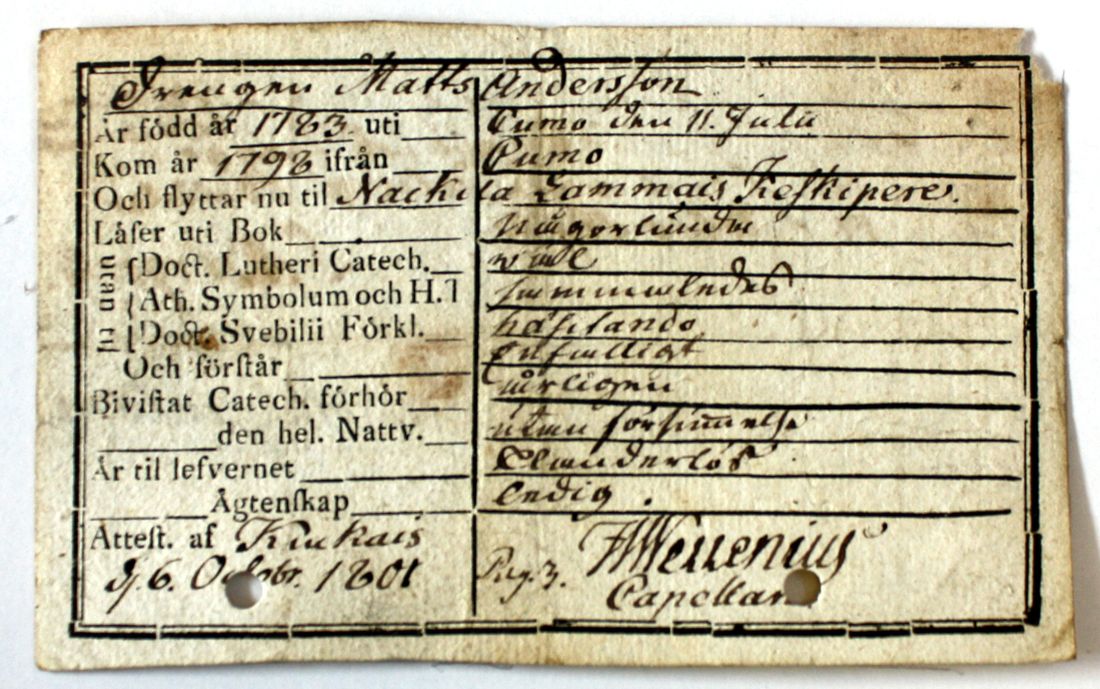 Drengen Matts Andersson
Är född år 1783 uti Cumo den 11. Julii
Kom år 1798 ifrån Cumo
Och flyttar nu til Nackila Lammais Keskipere.
Låſer uti Bok någorlunda
utan til
Doct. Lutheri Catech. wäl
Ath. Symbolum och H. T sammaledes
Doct. Svebilii Förkl. hæsitando
Och förſtår enfalligt
Biviſtat Catech. förhör årligen
den hel. Nattv. utan försummelse
År til lefvernet Clanderlös
Ägtenſkap Ledig.
Atteſt. af Kiukais
d. 6. Octobr. 1801 Pag. 3.
Capellan